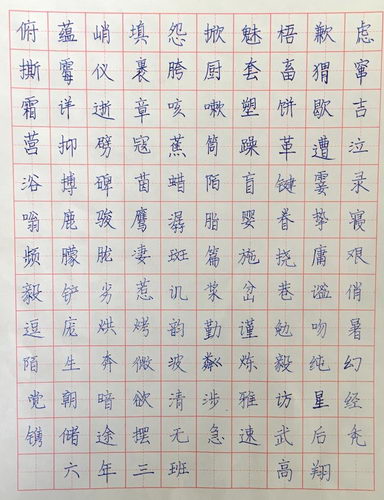 俯蕴峭填怨掀魅梧歉虑
撕霉仪裹胯厨套畜猬窜
霜详逝章咳嗽塑饼歇吉
营抑劈寇蕉筒躁革遭泣
浴搏碑苗蜡陌盲键雾录
嗡鹿骏鹰潺脂婴眷挚寝
频朦胧凄斑篇施挠庸艰
毅铲劣惹讥浆岔巷谧俏
逗庞烘烤韵勤谨勉吻暑
陌生奔微波粼炼毅纯幻
党朝暗欲清涉雅访星经
镌储途摆无急速武后凭
六年三班高翔